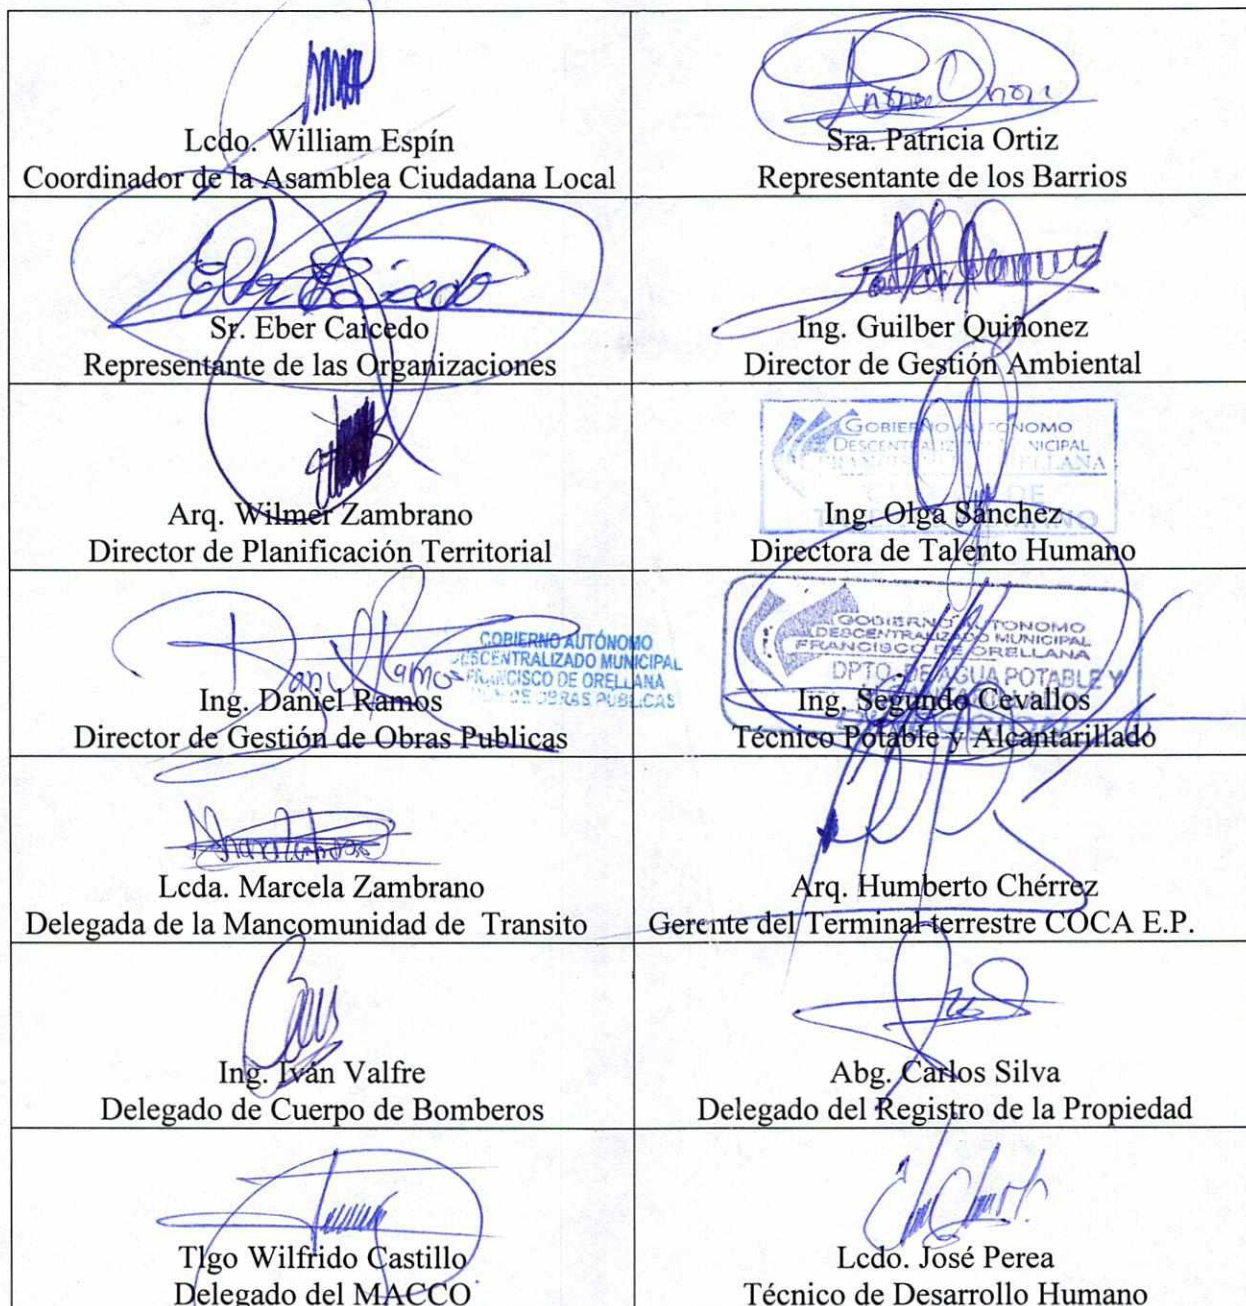 Lcdo. William Espín
Coordinador de la Asamblea Ciudadana Local
Sra. Patricia Ortiz
Representante de los Barrios
Eber Caicedo
Sr. Eber Caicedo
Representante de las Organizaciones
Ing. Guilber Quiñonez
Director de Gestión Ambiental
Arq. Wilmer Zambrano
Director de Planificación Territorial
GOBIERNO AUTÓNOMO
DESCENTRALIZADO MUNICIPAL
FRANCISCO DE ORELLANA
Ing. Olga Sánchez
Directora de Talento Humano
Daniel Ramos
GOBIERNO AUTÓNOMO
DESCENTRALIZADO MUNICIPAL
FRANCISCO DE ORELLANA
DE OBRAS PUBLICAS
Ing. Daniel Ramos
Director de Gestión de Obras Publicas
GOBIERNO AUTONOMO
DESCENTRALIZADO MUNICIPAL
FRANCISCO DE ORELLANA
DPTO. DE AGUA POTABLE Y
Ing. Segundo Cevallos
Técnico Potable y Alcantarillado
Lcda. Marcela Zambrano
Delegada de la Mancomunidad de Transito
Arq. Humberto Chérrez
Gerente del Terminal terrestre COCA E.P.
Ing. Iván Valfre
Delegado de Cuerpo de Bomberos
Abg. Carlos Silva
Delegado del Registro de la Propiedad
Tlgo Wilfrido Castillo
Delegado del MACCO
Lcdo. José Perea
Técnico de Desarrollo Humano